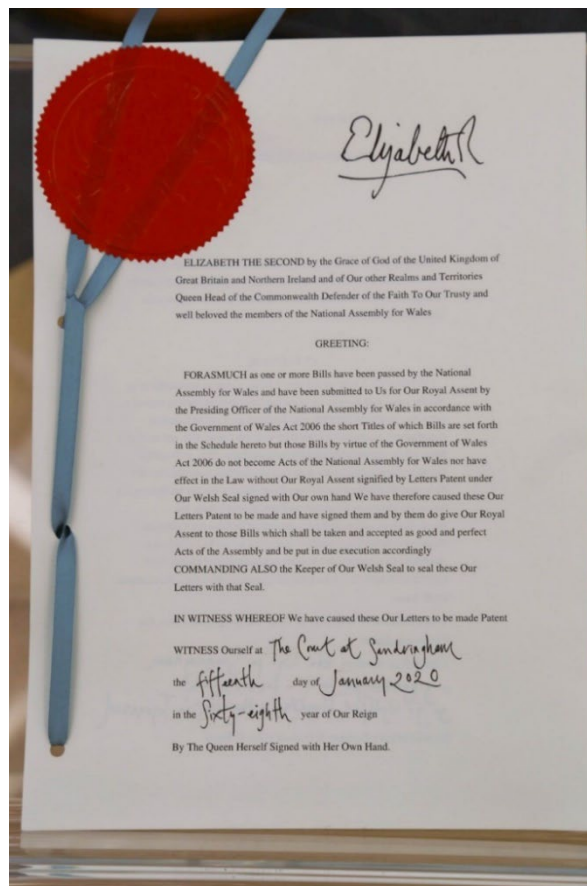 Elizabeth R
ELIZABETH THE SECOND by the Grace of God of the United Kingdom of
Great Britain and Northern Ireland and of Our other Realms and Territories
Queen Head of the Commonwealth Defender of the Faith To Our Trusty and
well beloved the members of the National Assembly for Wales
GREETING:
FORASMUCH as one or more Bills have been passed by the National
Assembly for Wales and have been submitted to Us for Our Royal Assent by
the Presiding Officer of the National Assembly for Wales in accordance with
the Government of Wales Act 2006 the short Titles of which Bills are set forth
in the Schedule hereto but those Bills by virtue of the Government of Wales
Act 2006 do not become Acts of the National Assembly for Wales nor have
effect in the Law without Our Royal Assent signified by Letters Patent under
Our Welsh Seal signed with Our own hand We have therefore caused these Our
Letters Patent to be made and have signed them and by them do give Our Royal
Assent to those Bills which shall be taken and accepted as good and perfect
Acts of the Assembly and be put in due execution accordingly
COMMANDING ALSO the Keeper of Our Welsh Seal to seal these Our
Letters with that Seal.
IN WITNESS WHEREOF We have caused these Our Letters to be made Patent
WITNESS Ourself at The Court at Sandringham
the fifteenth day of January 2020
in the Sixty-eighth year of Our Reign
By The Queen Herself Signed with Her Own Hand.